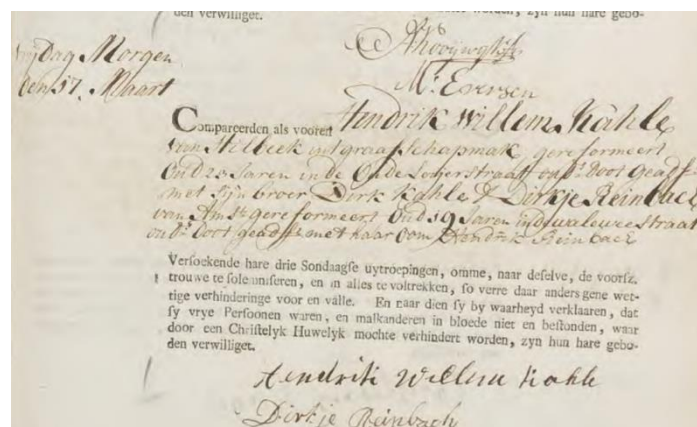 den verwilliget.
zyn hun hare gebo-
Morgen
Maart
Mr. Eversen
Compareerden als vooren Hendrik Willem Kahle
van Hilbeek int graafschapmak gereformeert
Oud 25 Jaren in de Oude
met sijn broer Dirk Kahle & Dirkje Reinbach
van Amst gereformeert Oud 39 Jaren in de
met haar Oom Hendrik Reinbach
Versoekende hare drie Sondaagse uytroepingen, omme, naar deselve, de voorsz.
trouwe te solemniseren, en in alles te voltrekken, so verre daar anders gene wet-
tige verhinderinge voor en valle. En naar dien sy by waarheyd verklaaren, dat
sy vrye Persoonen waren, en malkanderen in bloede niet en bestonden, waar
door een Christelyk Huwelyk mochte verhindert worden, zyn hun hare gebo-
den verwilliget.
Hendrik Willem Kahle
Dirkje Reinbach